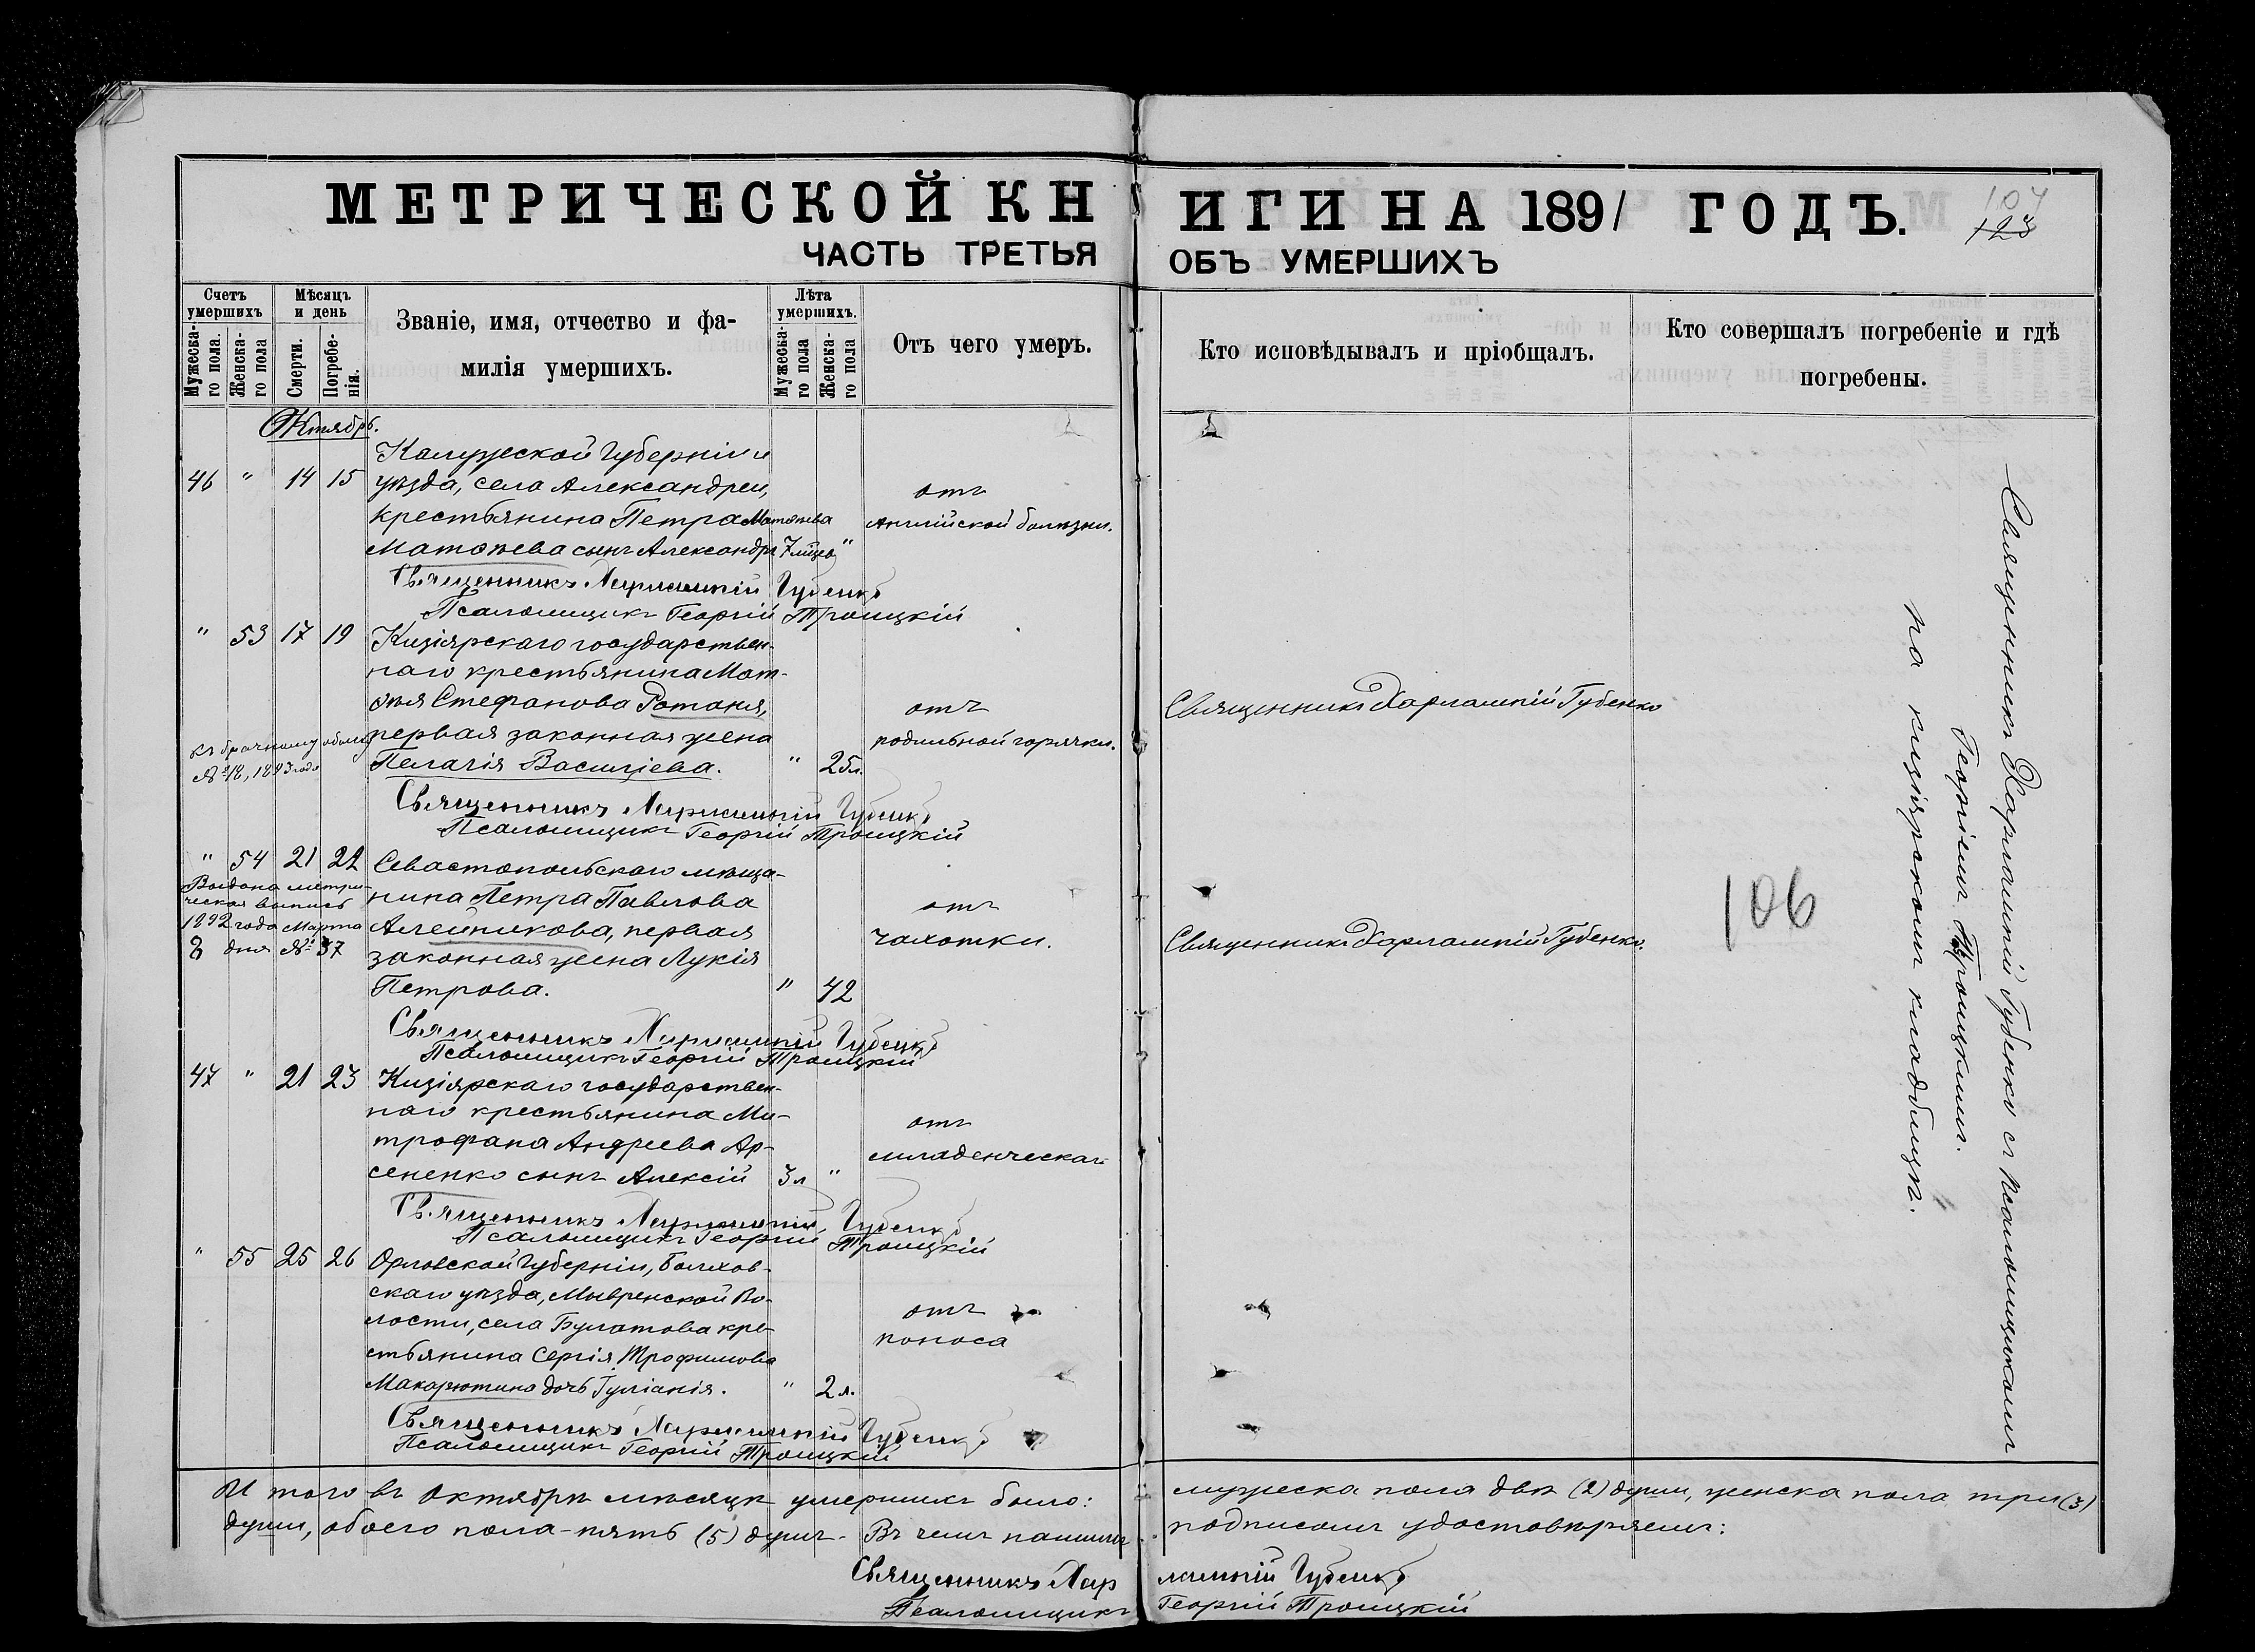 МЕТРИЧЕСКОЙ КНИГИ НА 1891 ГОДЪ.
107
123
ЧАСТЬ ТРЕТЬЯ ОБЪ УМЕРШИХЪ
Счетъ умершихъ
Мужеска-го пола.
Женска-го пола
Мѣсяцъ и день
Смерти.
Погребе-нія.
Званіе, имя, отчество и фа-
милія умершихъ.
Лѣта умершихъ.
Мужеска-го пола
Женска-го пола
Отъ чего умеръ.
Кто исповѣдывалъ и пріобщалъ.
Кто совершалъ погребеніе и гдѣ
погребены.
Октябрь.
Калужской Губерніи и
46 " 14 15 уѣзда, села Александреи, отъ
крестьянина Петра Матѳеева Англійской болѣзни.
Матѳеева сынъ Александръ 7 мѣсяц. "
Священникъ Харлампій Губенко
Псаломщикъ Георгій Троицкій
" 53 17 19 Кизіярскаго государствен-
наго крестьянина Мат-
ѳея Стефанова Ротаня, отъ Священникъ Харлампій Губенко
первая законная жена родильной горячки.
Пелагія Василіева. " 25 л.
къ брачному обыску
№ 18, 1893 года
Священникъ Харлампій Губенко
Псаломщикъ Георгій Троицкій
" 54 21 22 Севастопольскаго мѣща-
нина Петра Павлова отъ
Алейникова, первая чахотки. Священникъ Харлампій Губенко.
законная жена Лукія
Петрова. " 42
Выдана метри-
ческая выпись
1892 года Марта
8 дня № 37
Священникъ Харлампій Губенко
Псаломщикъ Георгій Троицкій
47 " 21 23 Кизіярскаго государствен-
наго крестьянина Ми- отъ
трофана Андреева Ар- младенческаг.
сененко сынъ Алексій 3 л "
Священникъ Харлампій Губенко
Псаломщикъ Георгій Троицкій
" 55 25 26 Орловской Губерніи, Болхов-
скаго уѣзда, Во- отъ
лости, села Булатова кре- поноса
стьянина Сергія Трофимова
Макарютина дочь Іуліанія. " 2 л.
Священникъ Харлампій Губенко
Псаломщикъ Георгій Троицкій
106
Священникъ Харлампій Губенко съ псаломщикомъ
Георгіемъ Троицкимъ.
на кизіярскомъ кладбищѣ.
И того въ Октябрѣ мѣсяцѣ умершихъ было: мужеска пола двѣ (2) души, женска пола три (3)
души, обоего пола - пять (5) душъ. Въ чемъ нашимъ подписомъ удостовѣряемъ:
Священникъ Харлампій Губенко
Псаломщикъ Георгій Троицкій